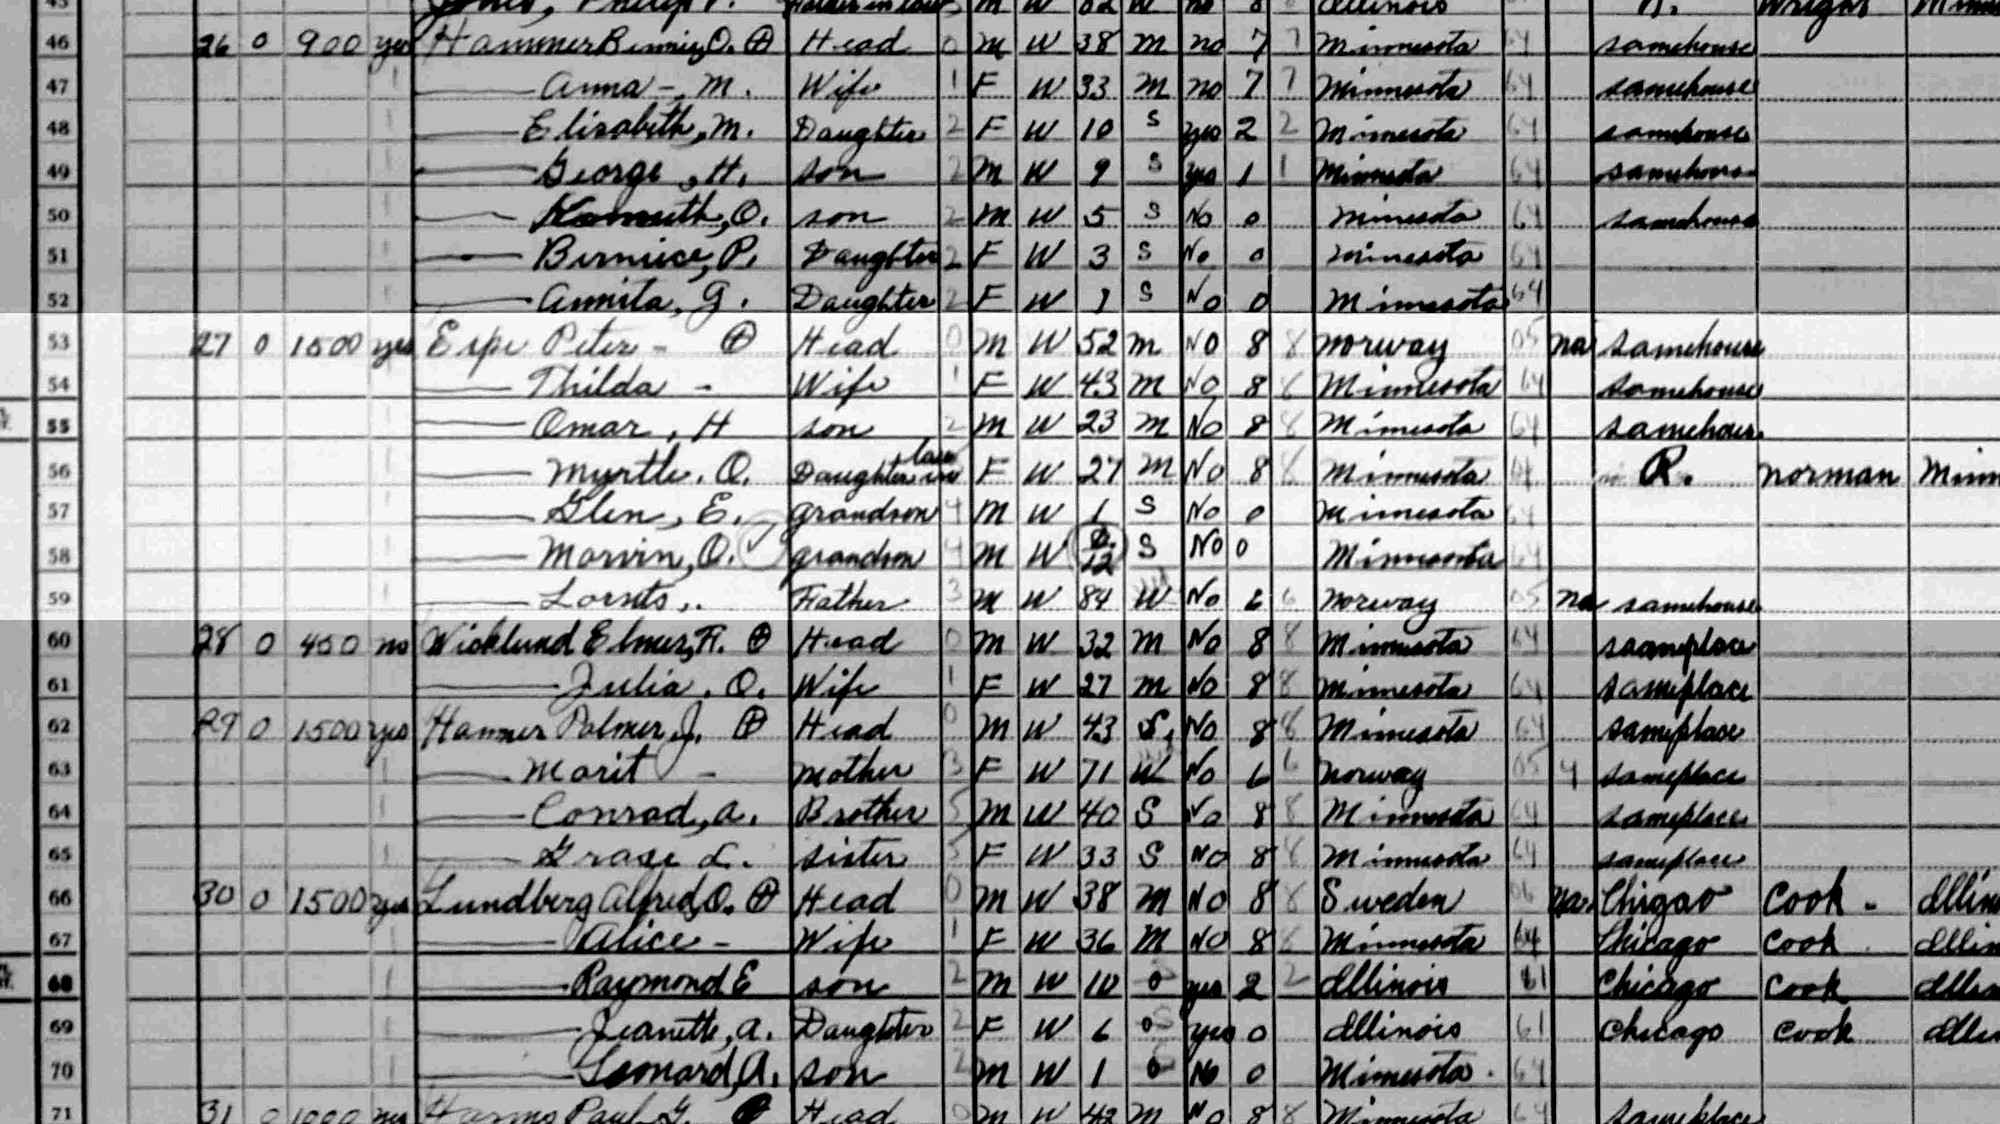 46 26 0 900 yes Hammer Bennie, O. ⊕ Head 0 M W 38 M no 7 7 Minnesota 64 samehouse
47 Anna -, M. Wife 1 F W 33 M no 7 7 Minnesota 64 samehouse
48 Elizabeth, M. Daughter 2 F W 10 S yes 2 2 Minnesota 64 samehouse
49 George, H. son 2 M W 9 S yes 1 1 Minnesota 64 samehouse
50 O. son 2 M W 5 S No 0 Minnesota 64 samehouse
51 Bernice, P. Daughter 2 F W 3 S No 0 Minnesota 64
52 Annita, G. Daughter 2 F W 1 S No 0 Minnesota 64
53 27 0 1500 yes Espe Peter - ⊕ Head 0 M W 52 M No 8 8 Norway 05 na samehouse
54 Thilda - Wife 1 F W 43 M No 8 8 Minnesota 64 samehouse
55 Omar, H son 2 M W 23 M No 8 8 Minnesota 64 samehouse
56 Myrtle, O. Daughter in law F W 27 M No 8 8 Minnesota 64 R. Norman Minn
57 Glen, E. grandson 4 M W 1 S No 0 Minnesota 64
58 Marvin, O. grandson 4 M W 0/12 S No 0 Minnesota 64
59 Father 3 M W 84 W No 6 6 Norway 05 na samehouse
60 28 0 450 no Wicklund Elmer, F. ⊕ Head 0 M W 32 M No 8 8 Minnesota 64 sameplace
61 Julia, O. Wife 1 F W 27 M No 8 8 Minnesota 64 sameplace
62 29 0 1500 yes Hammer Palmer J. ⊕ Head 0 M W 43 S. No 8 8 Minnesota 64 sameplace
63 Marit - Mother 3 F W 71 W No 6 6 Norway 05 4 sameplace
64 Conrad, A. Brother 5 M W 40 S No 8 8 Minnesota 64 sameplace
65 Grace L. sister 5 F W 33 S No 8 8 Minnesota 64 sameplace
66 30 0 1500 yes Lundberg Alfred, O. ⊕ Head 0 M W 38 M No 8 8 Sweden 06 na Chigao Cook - Illin
67 Alice - Wife 1 F W 36 M No 8 8 Minnesota 64 Chicago Cook Illin
68 Raymond E son 2 M W 10 yes 2 2 Illinois 61 Chicago Cook Illin
69 Jeanette, A. Daughter 2 F W 6 S yes 0 Illinois 61 Chicago Cook Illin
70 Leonard, A. son 2 M W 1 No 0 Minnesota 64
71 31 0 1000 yes Paul G. ⊕ Head 0 M W 42 M No 8 8 Minnesota 64 sameplace